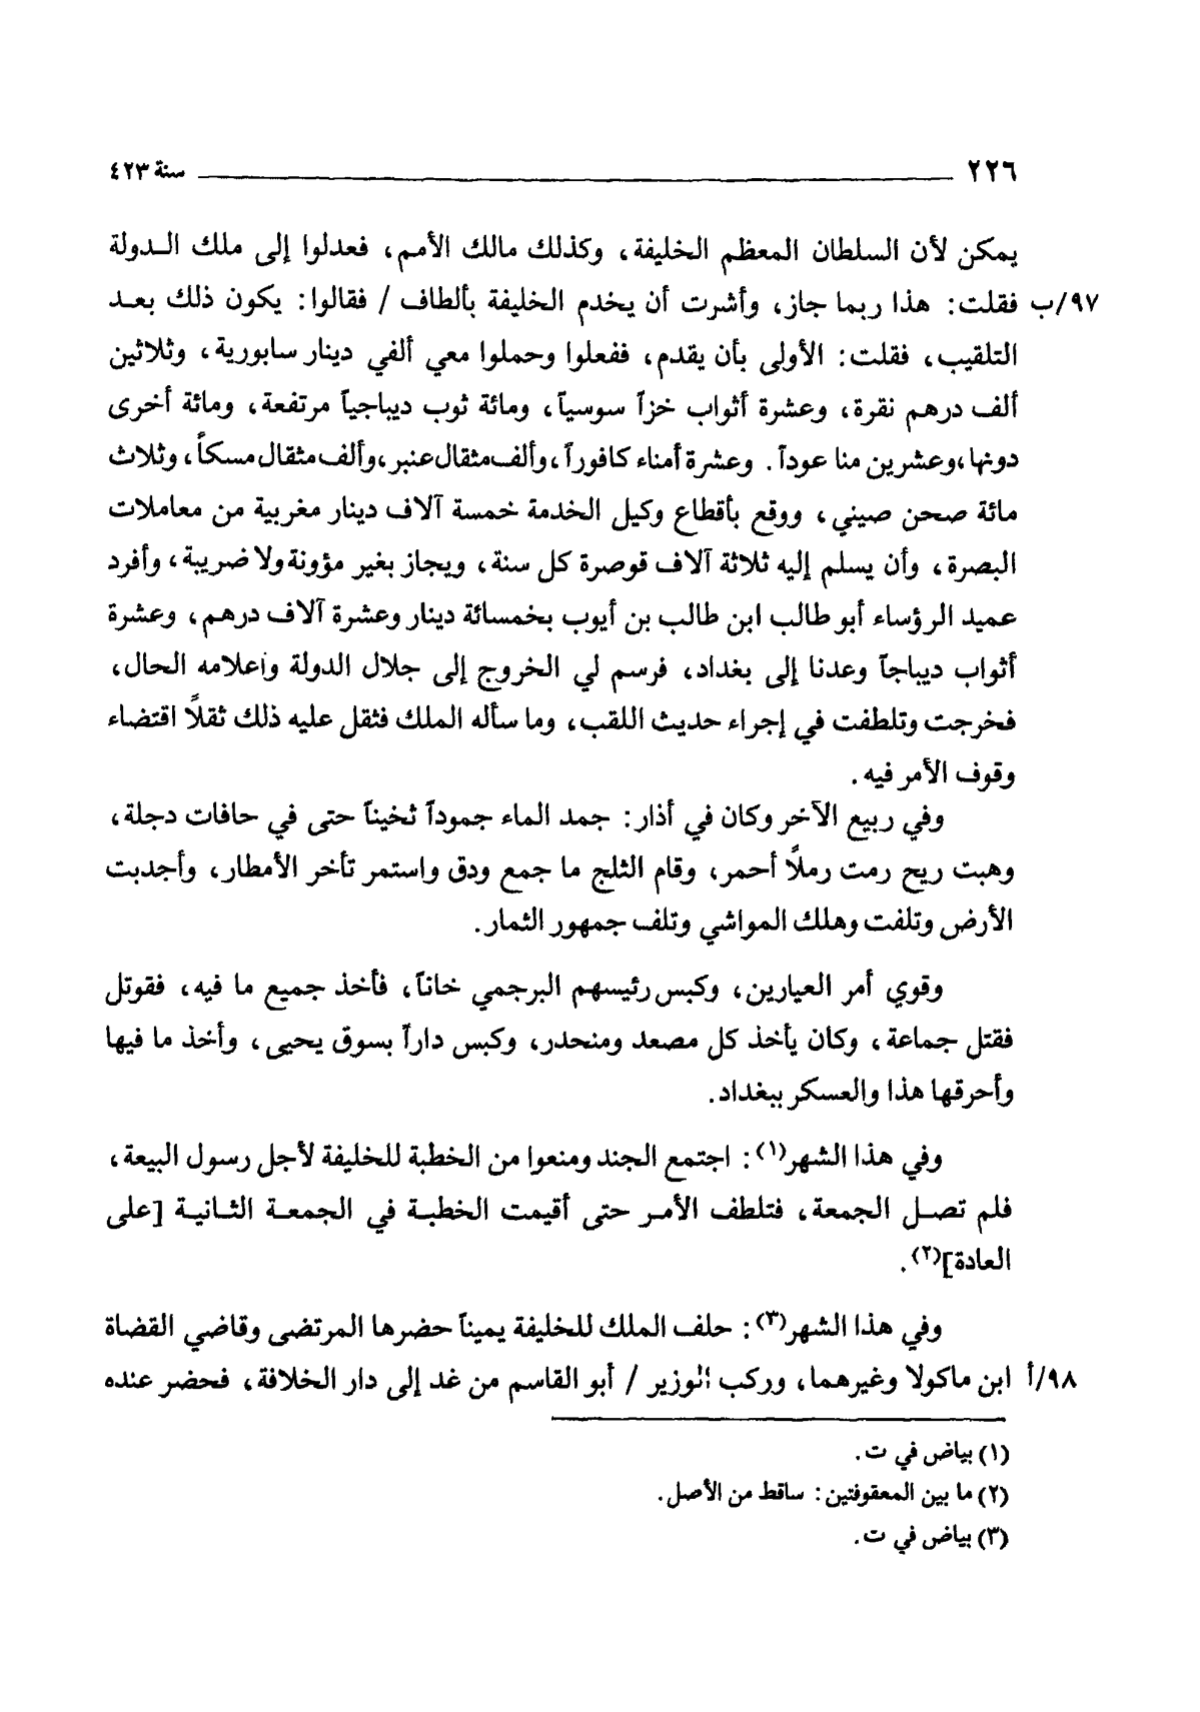 ٢٢٦ سنة ٤٢٣
يمكن لأن السلطان المعظم الخليفة، وكذلك مالك الأمم، فعدلوا إلى ملك الـدولة
٩٧/ب فقلت: هذا ربما جاز، وأشرت أن يخدم الخليفة بألطاف / فقالوا: يكون ذلك بعـد
التلقيب، فقلت: الأولى بأن يقدم، ففعلوا وحملوا معي ألفي دينار سابورية، وثلاثين
ألف درهم نقرة، وعشرة أثواب خزاً سوسياً، ومائة ثوب ديباجياً مرتفعة، ومائة أخرى
دونها،وعشرين منا عوداً. وعشرة أمناء كافوراً،وألف مثقال عنبر،وألف مثقال مسكاً، وثلاث
مائة صحن صيني، ووقع بأقطاع وكيل الخدمة خمسة آلاف دينار مغربية من معاملات
البصرة، وأن يسلم إليه ثلاثة آلاف قوصرة كل سنة، ويجاز بغير مؤونة ولا ضريبة، وأفرد
عميد الرؤساء أبو طالب ابن طالب بن أيوب بخمسائة دينار وعشرة آلاف درهم، وعشرة
أثواب ديباجاً وعدنا إلى بغداد، فرسم لي الخروج إلى جلال الدولة وأعلامه الحال،
فخرجت وتلطفت في إجراء حديث اللقب، وما سأله الملك فثقل عليه ذلك ثقلاً اقتضاء
وقوف الأمر فيه.
وفي ربيع الآخر وكان في أذار: جمد الماء جموداً ثخيناً حتى في حافات دجلة،
وهبت ريح رمت رملاً أحمر، وقام الثلج ما جمع ودق واستمر تأخر الأمطار، وأجدبت
الأرض وتلفت وهلك المواشي وتلف جمهور الثمار.
وقوي أمر العيارين، وكبس رئيسهم البرجمي خاناً، فأخذ جميع ما فيه، فقوتل
فقتل جماعة، وكان يأخذ كل مصعد ومنحدر، وكبس داراً بسوق يحيى، وأخذ ما فيها
وأحرقها هذا والعسكر ببغداد.
وفي هذا الشهر(١): اجتمع الجند ومنعوا من الخطبة للخليفة لأجل رسول البيعة،
فلم تصـل الجمعة، فتلطف الأمـر حتى أقيمت الخطبـة في الجمعـة الثـانيـة [على
العادة](٢).
وفي هذا الشهر(٣): حلف الملك للخليفة يميناً حضرها المرتضى وقاضي القضاة
٩٨/أ ابن ماكولا وغيرهما، وركب الوزير / أبو القاسم من غد إلى دار الخلافة، فحضر عنده
(١) بياض في ت.
(٢) ما بين المعقوفتين: ساقط من الأصل.
(٣) بياض في ت.